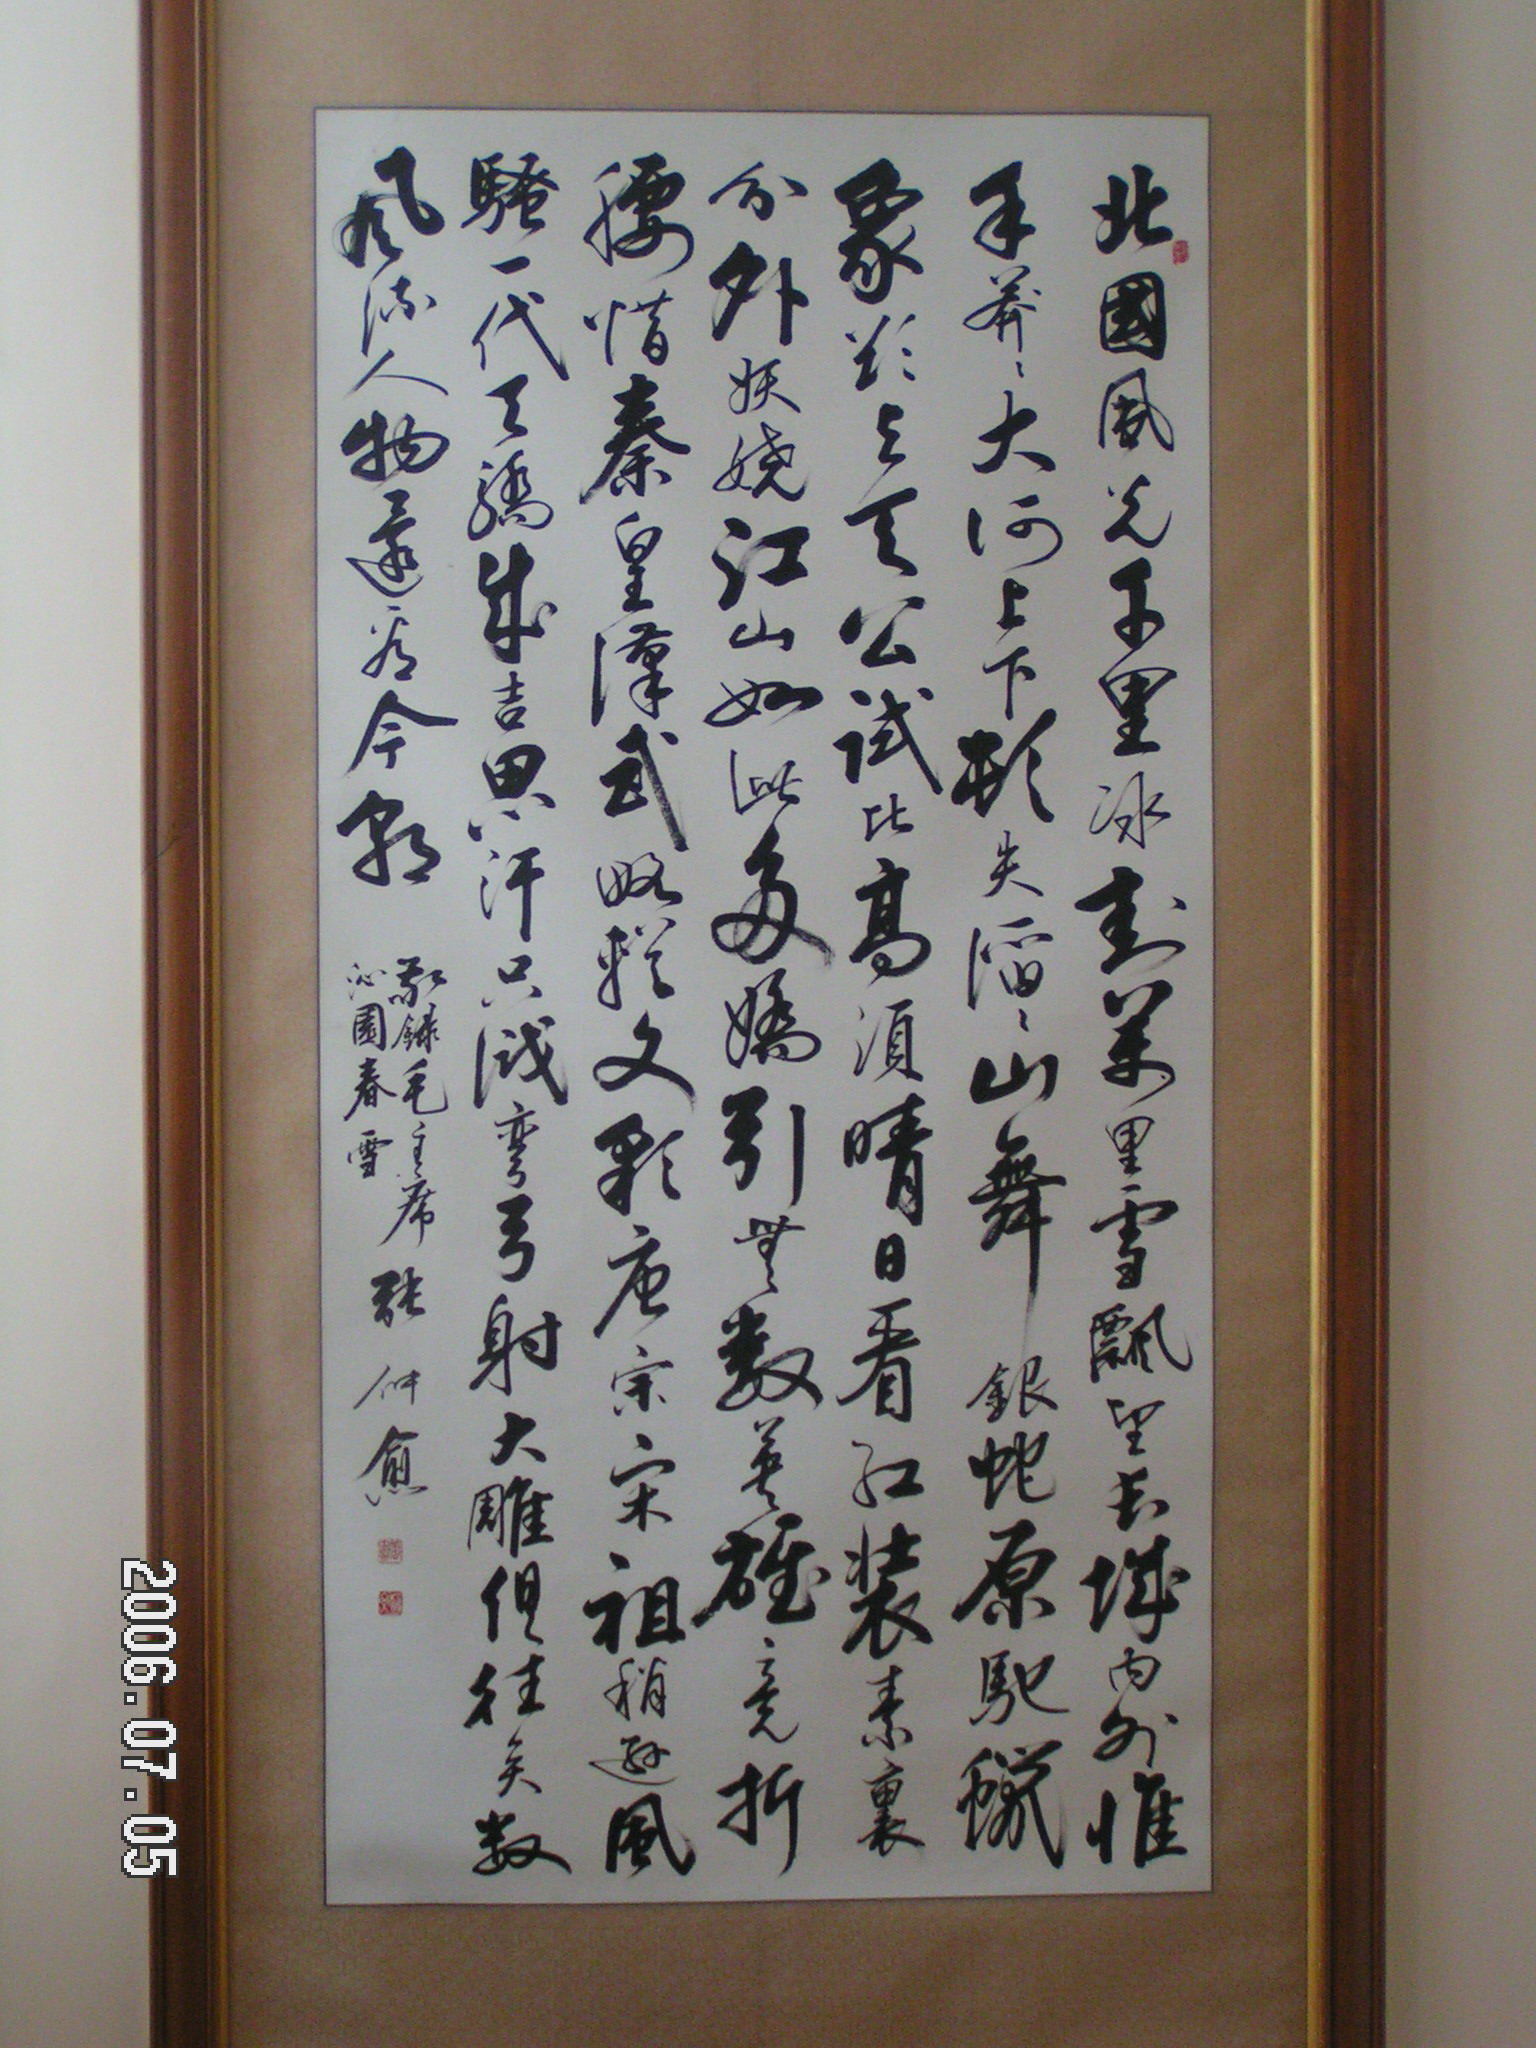 北國風光千里冰封萬里雪飄望長城内外惟
余莽々大河上下頓失滔々山舞銀蛇原馳蠟
象欲与天公試比高須晴日看紅裝素裹
分外妖嬈江山如此多嬌引無数英雄竞折
腰惜秦皇漢武略輸文彩唐宗宋祖稍遜風
騷一代天驕成吉思汗只識彎弓射大雕俱往矣数
風流人物還看今朝
敬録毛主席
沁園春雪
張 愈
2006.07.05